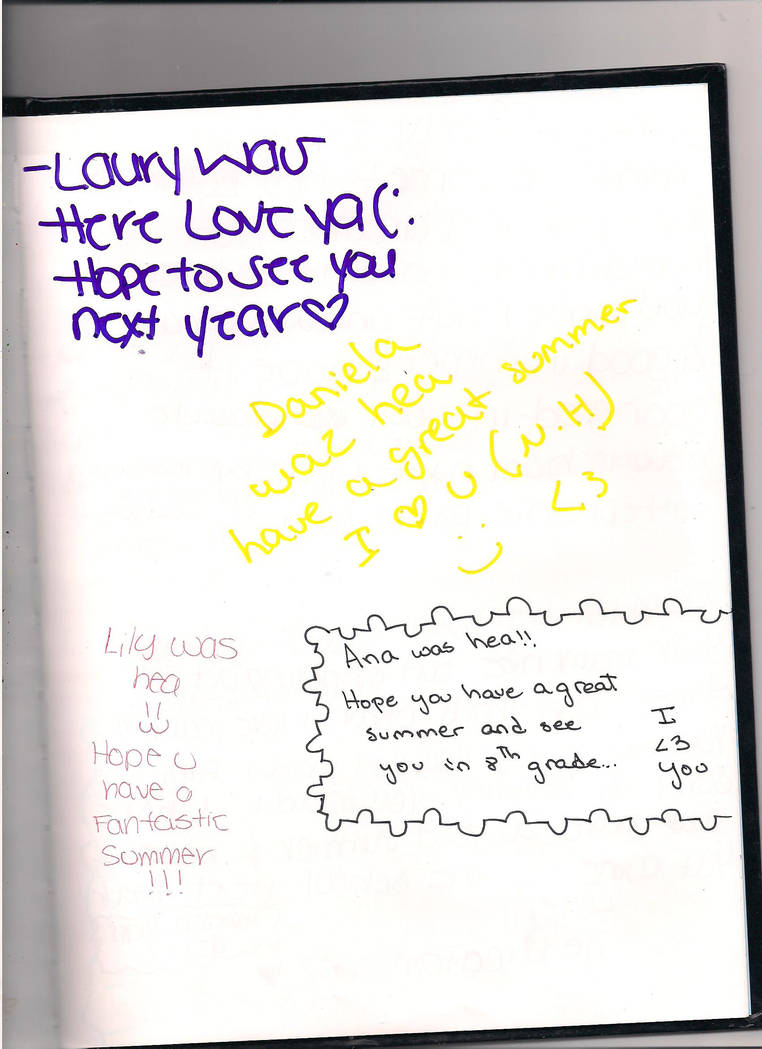 -Laury was
-Here Love ya (:
-Hope to see you
next year♡
Daniela
waz hea
have a great summer
I ♡ U (N.H)
<3
:)
Lily was
hea
=)
Hope u
have a
Fantastic
Summer
!!!
Ana was hea!!
Hope you have a great
summer and see
you in 8th grade...
I
<3
you